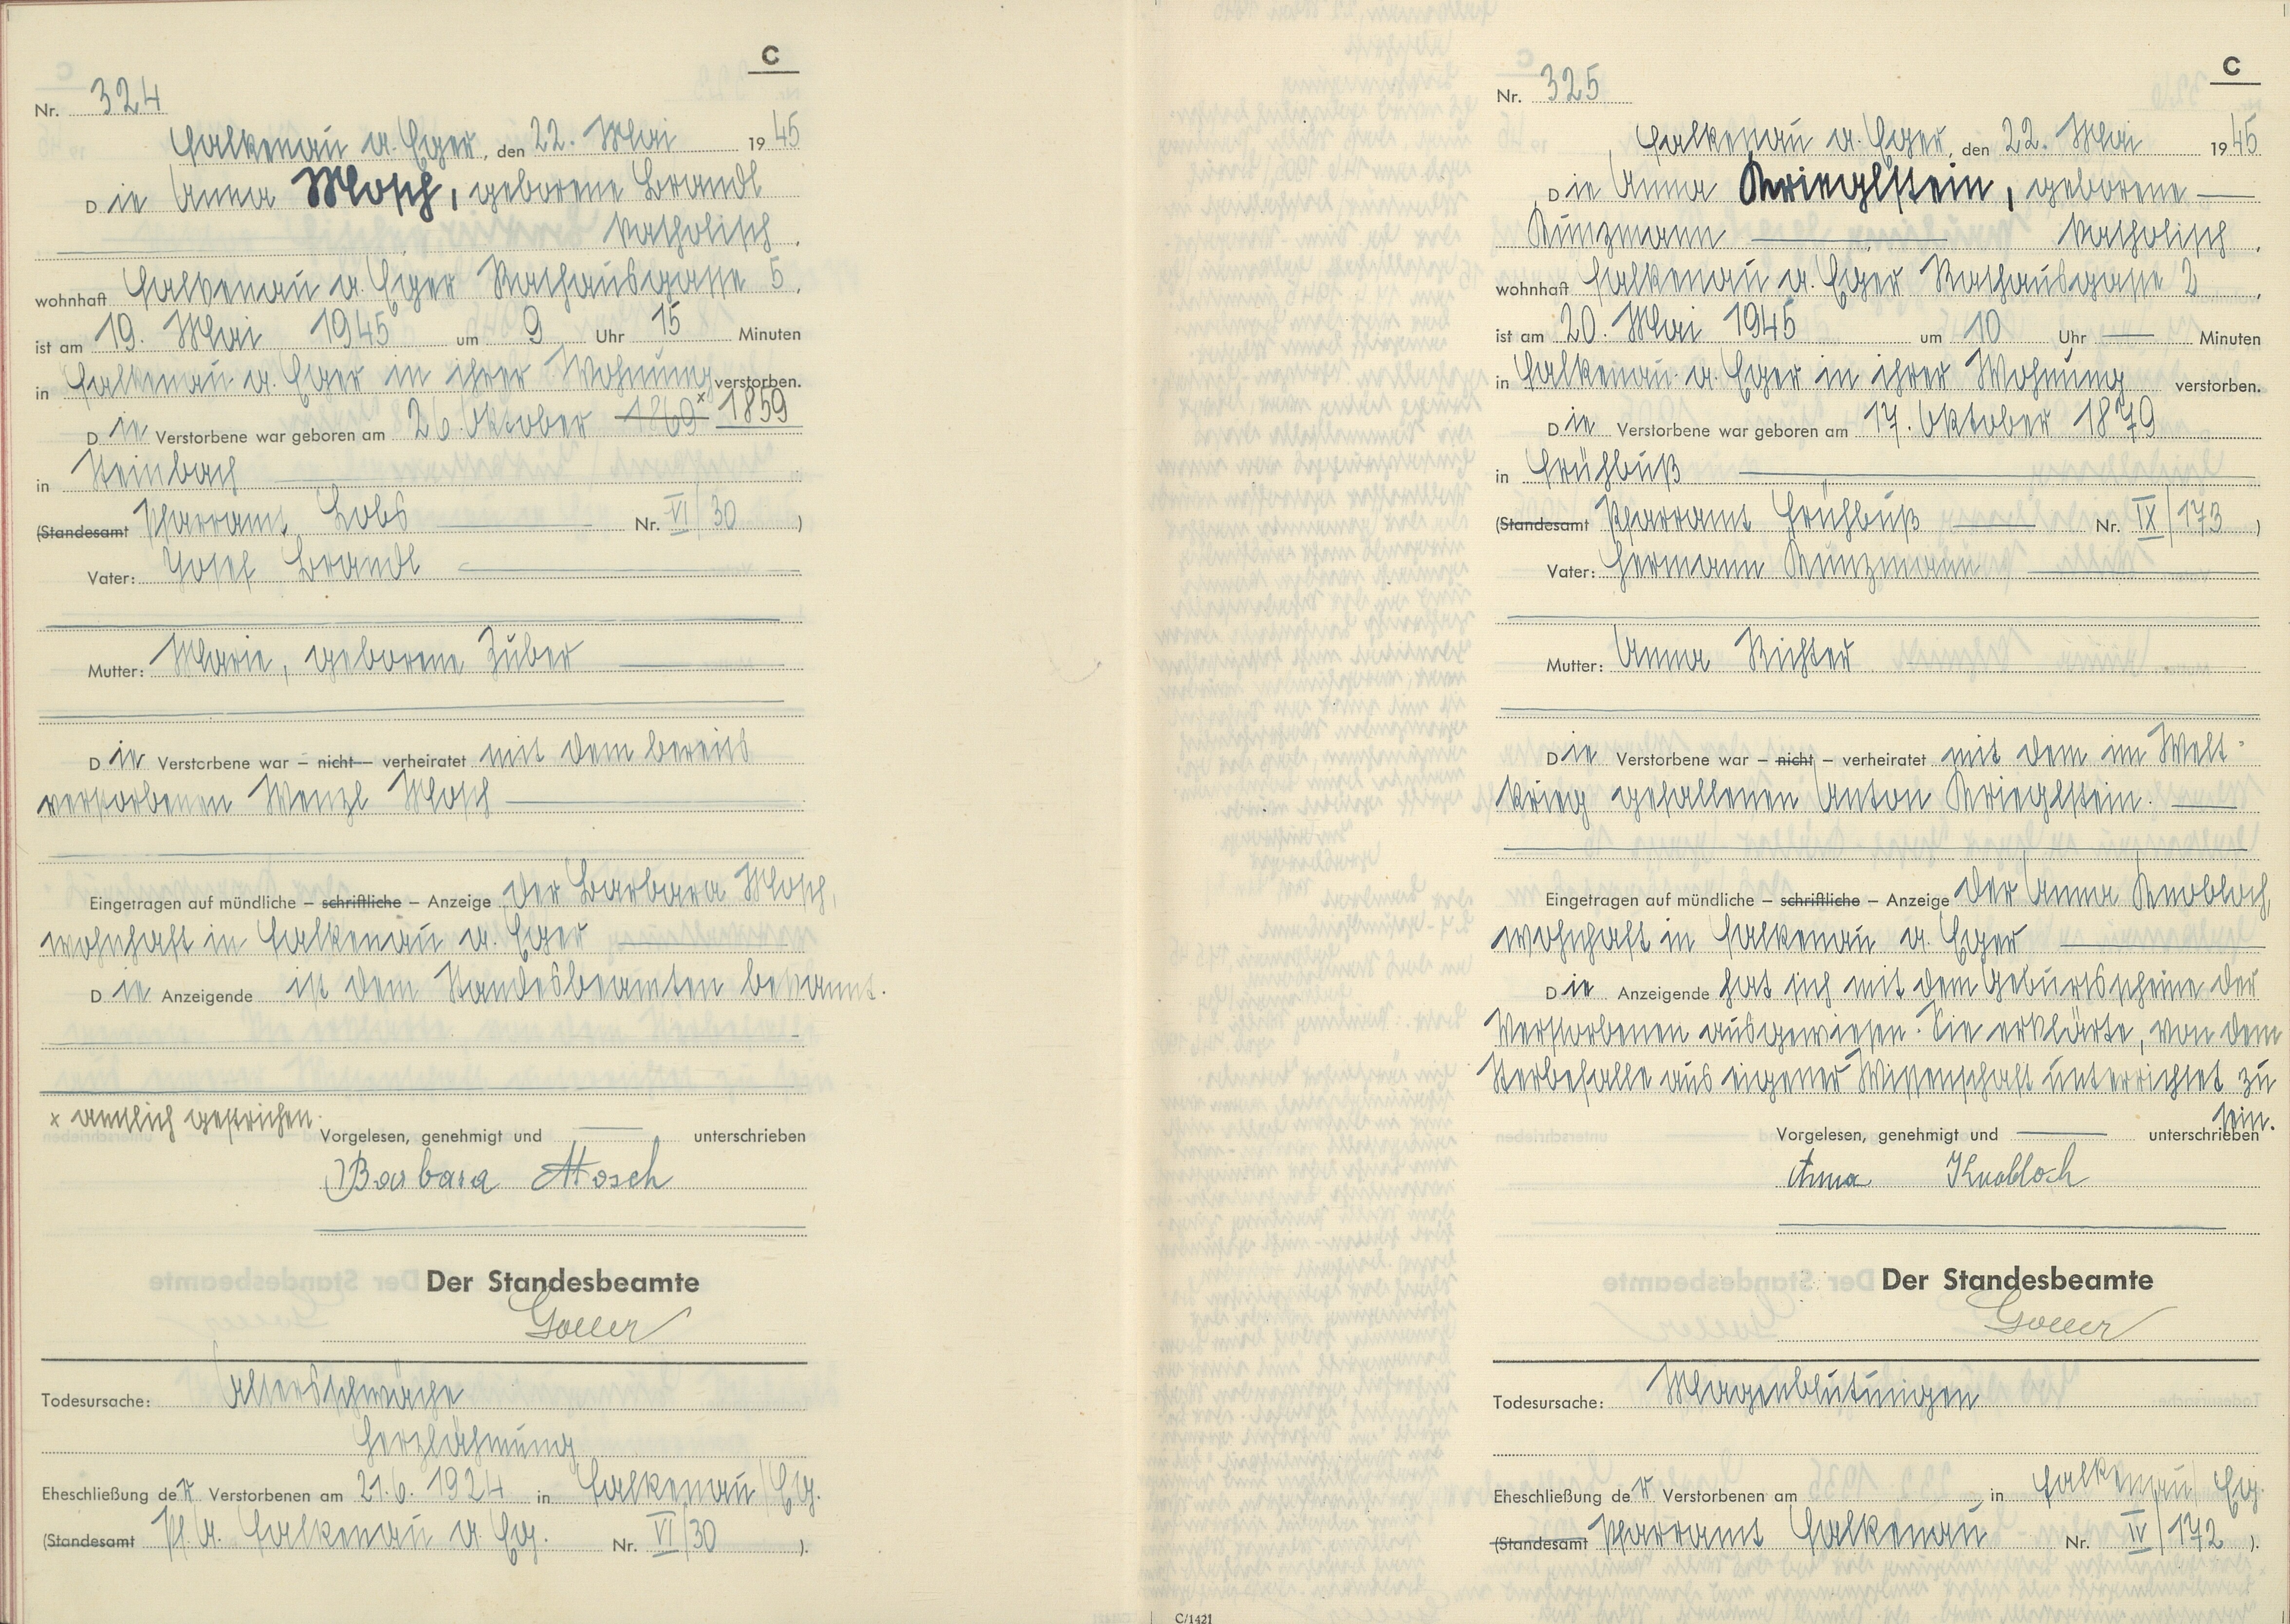 C
Nr. 324
Falkenau a. Eger, den 22. Mai 1945
Die Anna Mosch, geborene Brandl
katholisch.
wohnhaft Falkenau a. Eger Rathausgasse 5.
ist am 19. Mai 1945 um 9 Uhr 15 Minuten
in Falkenau a. Eger in ihrer Wohnung verstorben.
Die Verstorbene war geboren am 26. Oktober 1869 x 1859
in Steinbach
(Standesamt Pfarramt Lobs Nr. VI/30)
Vater: Josef Brandl
Mutter: Marie, geborene Zuber
Die Verstorbene war – nicht – verheiratet mit dem bereits
verstorbenen Wenzl Mosch
Eingetragen auf mündliche – schriftliche – Anzeige der Barbara Mosch,
wohnhaft in Falkenau a. Eger
Die Anzeigende ist dem Standesbeamten bekannt.
x amtlich gestrichen.
Vorgelesen, genehmigt und — unterschrieben
Barbara Mosch
Der Standesbeamte
Goller
Todesursache: Altersschwäche
Herzlähmung
Eheschließung der Verstorbenen am 21.6.1924 in Falkenau/Eg.
(Standesamt Pf. A. Falkenau a. Eg. Nr. VI/30).
C
Nr. 325
Falkenau a. Eger, den 22. Mai 1945
Die Anna Krieglstein, geborene —
Kunzmann — katholisch.
wohnhaft Falkenau a. Eger Rathausgasse 2.
ist am 20. Mai 1945 um 10 Uhr — Minuten
in Falkenau a. Eger in ihrer Wohnung verstorben.
Die Verstorbene war geboren am 17. Oktober 1879
in Frühbuß
(Standesamt Pfarramt Frühbuß Nr. IX/173)
Vater: Hermann Kunzmann
Mutter: Anna Richter
Die Verstorbene war – nicht – verheiratet mit dem im Welt-
krieg gefallenen Anton Krieglstein.
Eingetragen auf mündliche – schriftliche – Anzeige der Anna Knobloch,
wohnhaft in Falkenau a. Eger
Die Anzeigende hat sich mit dem Geburtsscheine der
Verstorbenen ausgewiesen. Sie erklärte, von dem
Sterbefalle aus eigener Wissenschaft unterrichtet zu
sein.
Vorgelesen, genehmigt und — unterschrieben
Anna Knobloch
Der Standesbeamte
Goller
Todesursache: Magenblutungen
Eheschließung der Verstorbenen am in Falkenau/Eg.
(Standesamt Pfarramt Falkenau Nr. IV/172).
C/1421